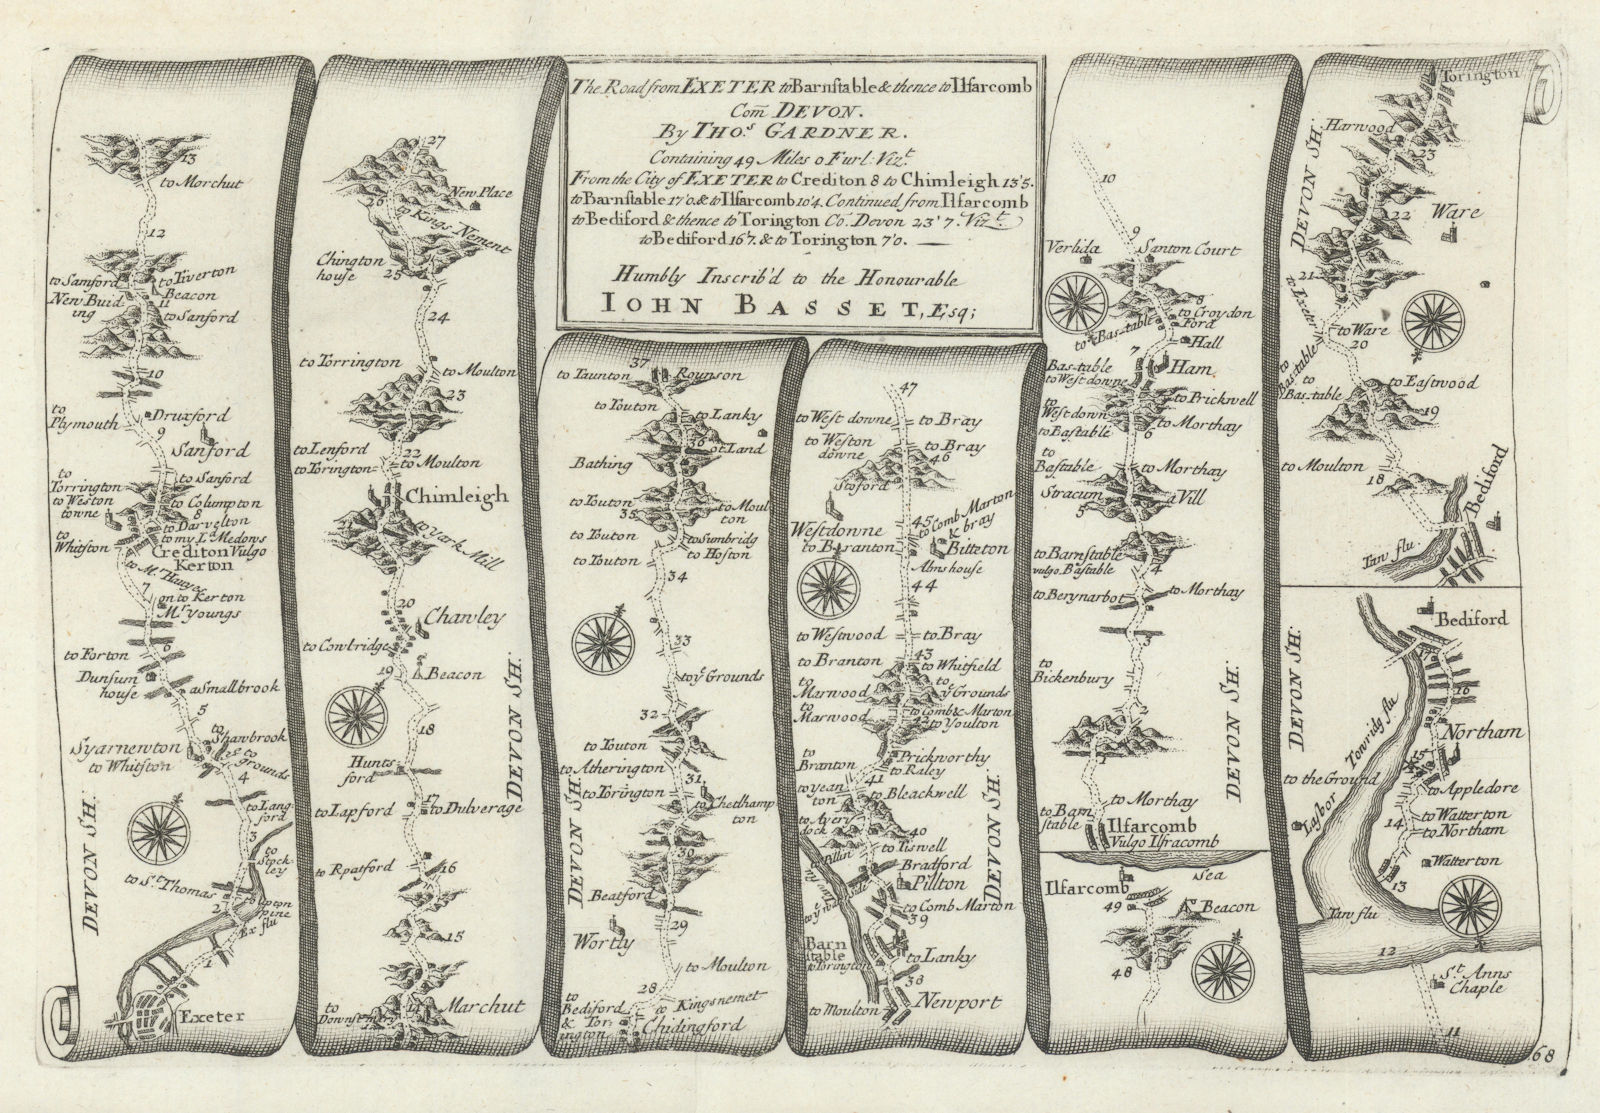 The Road from EXETER to Barnstable & thence to Ilfarcomb
Com̄ DEVON.
By THO.s GARDNER.
Containing 49 Miles 0 Furl: Viz.t
From the City of EXETER to Crediton 8 to Chimleigh 13'5.
to Barnstable 17'0. & to Ilfarcomb 10'4. Continued from Ilfarcomb
to Bediford & thence to Torington Co. Devon 23'7. Viz.t
to Bediford 16'7. & to Torington 7'0.
Humbly Inscrib'd to the Honourable
IOHN BASSET, Esq;
13
to Morchut
12
to Samford
to Tiverton
Beacon
New Buid
ing
11
to Sanford
10
to
Plymouth
Druxford
9
Sanford
to
Torrington
to Weston
towne
to Sanford
to Columpton
8
to Darvelton
to my L.d Medows
to
Whitston
Crediton Vulgo
Kerton
7
on to Kerton
M.r Youngs
6
to Forton
Dunsum
house
a Smallbrook
5
Syarnewton
to Whitston
to
Shawbrook
to
grounds
4
to Lang-
ford
3
to
Stock-
ley
to S.t Thomas
2
to Upton
pine
Ex flu
1
DEVON SH:
Exeter
27
New Place
26
to Kings Nement
Chington
house
25
24
to Torrington
to Moulton
23
to Lenford
22
to Torington
to Moulton
Chimleigh
21
to york Mill
20
Chawley
to Cowbridge
19
Beacon
18
DEVON SH:
Hunts
ford
17
to Lapford
to Dulverage
to Rpatford
16
15
to
Marchut
37
to Taunton
Rounson
to Touton
to Lanky
36
ot Land
Bathing
to Touton
to Moul
ton
35
to Touton
to Sumbridg
to Hoston
to Touton
34
33
to y.e Grounds
32
to Touton
to Atherington
31
to Torington
to Chetlhamp
ton
DEVON SH:
30
Beatford
29
Wortly
to Moulton
28
to
Bediford
& Tor-
ington
to Kingsnemet
Chidingford
47
to West downe
to Bray
to Weston
downe
to Bray
46
Stoford
45
to Comb Marton
& bray
Westdowne
to Branton
Bitteton
Alnshouse
44
to Westwood
to Bray
43
to Branton
to Whitfield
to
Marwood
to
y.e Grounds
to
Marwood
to Comb & Marton
42
to Youlton
to
Branton
Prickworthy
to Raley
41
to yean
ton
to Bleackwell
to Avery
dock
40
to Tiswell
Bradford
Pillton
to Comb Marton
39
DEVON SH:
Barn
stable
to Torington
to Lanky
38
to Moulton
Newport
10
9
Verlida
Santon Court
8
to Croydon
Ford
to Bas-table
Hall
7
Bas-table
to West downe
Ham
to
West down
to Bastable
to Prickwell
to Morthay
6
to
Bastable
to Morthay
Stracum
a Vill
5
to Barnstable
vulgo. Bastable
4
to Berynarbot
to Morthay
3
to
Bickenbury
2
DEVON SH:
1
to Barn
stable
to Morthay
Ilfarcomb
Vulgo Ilfracomb
Sea
Ilfarcomb
49
Beacon
48
Torington
Harwood
23
DEVON SH:
22
Ware
21
to Exeter
to Ware
20
to
Bas-table
to
Bas-table
to Eastwood
19
to Moulton
18
Bediford
Taw flu.
Bediford
17
16
DEVON SH:
Towridg flu
Northam
15
to the Ground
to Appledore
Lasbor
14
to Watterton
to Northam
Watterton
13
Taw flu
12
S.t Anns
Chaple
11
68